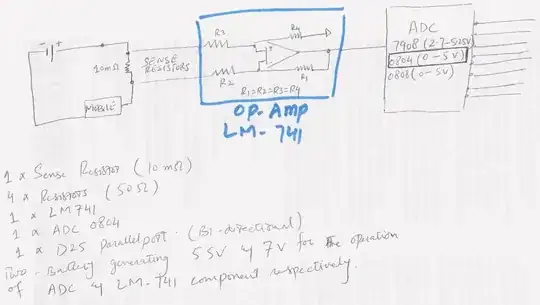 - +
10mΩ
SENSE
RESISTORS
MOBILE
R3
R4
R2
R1
R1=R2=R3=R4
OP-Amp
LM-741
ADC
7908 (2.7-5.25V)
0804 (0-5V)
0808 (0-5V)
1 x Sense Resistor (10mΩ)
4 x Resistors (50Ω)
1 x LM741
1 x ADC 0804
1 x D25 Parallel port. (Bi-directional)
Two-Battery generating 5.5V & 7V for the operation
of ADC & LM-741 component respectively.